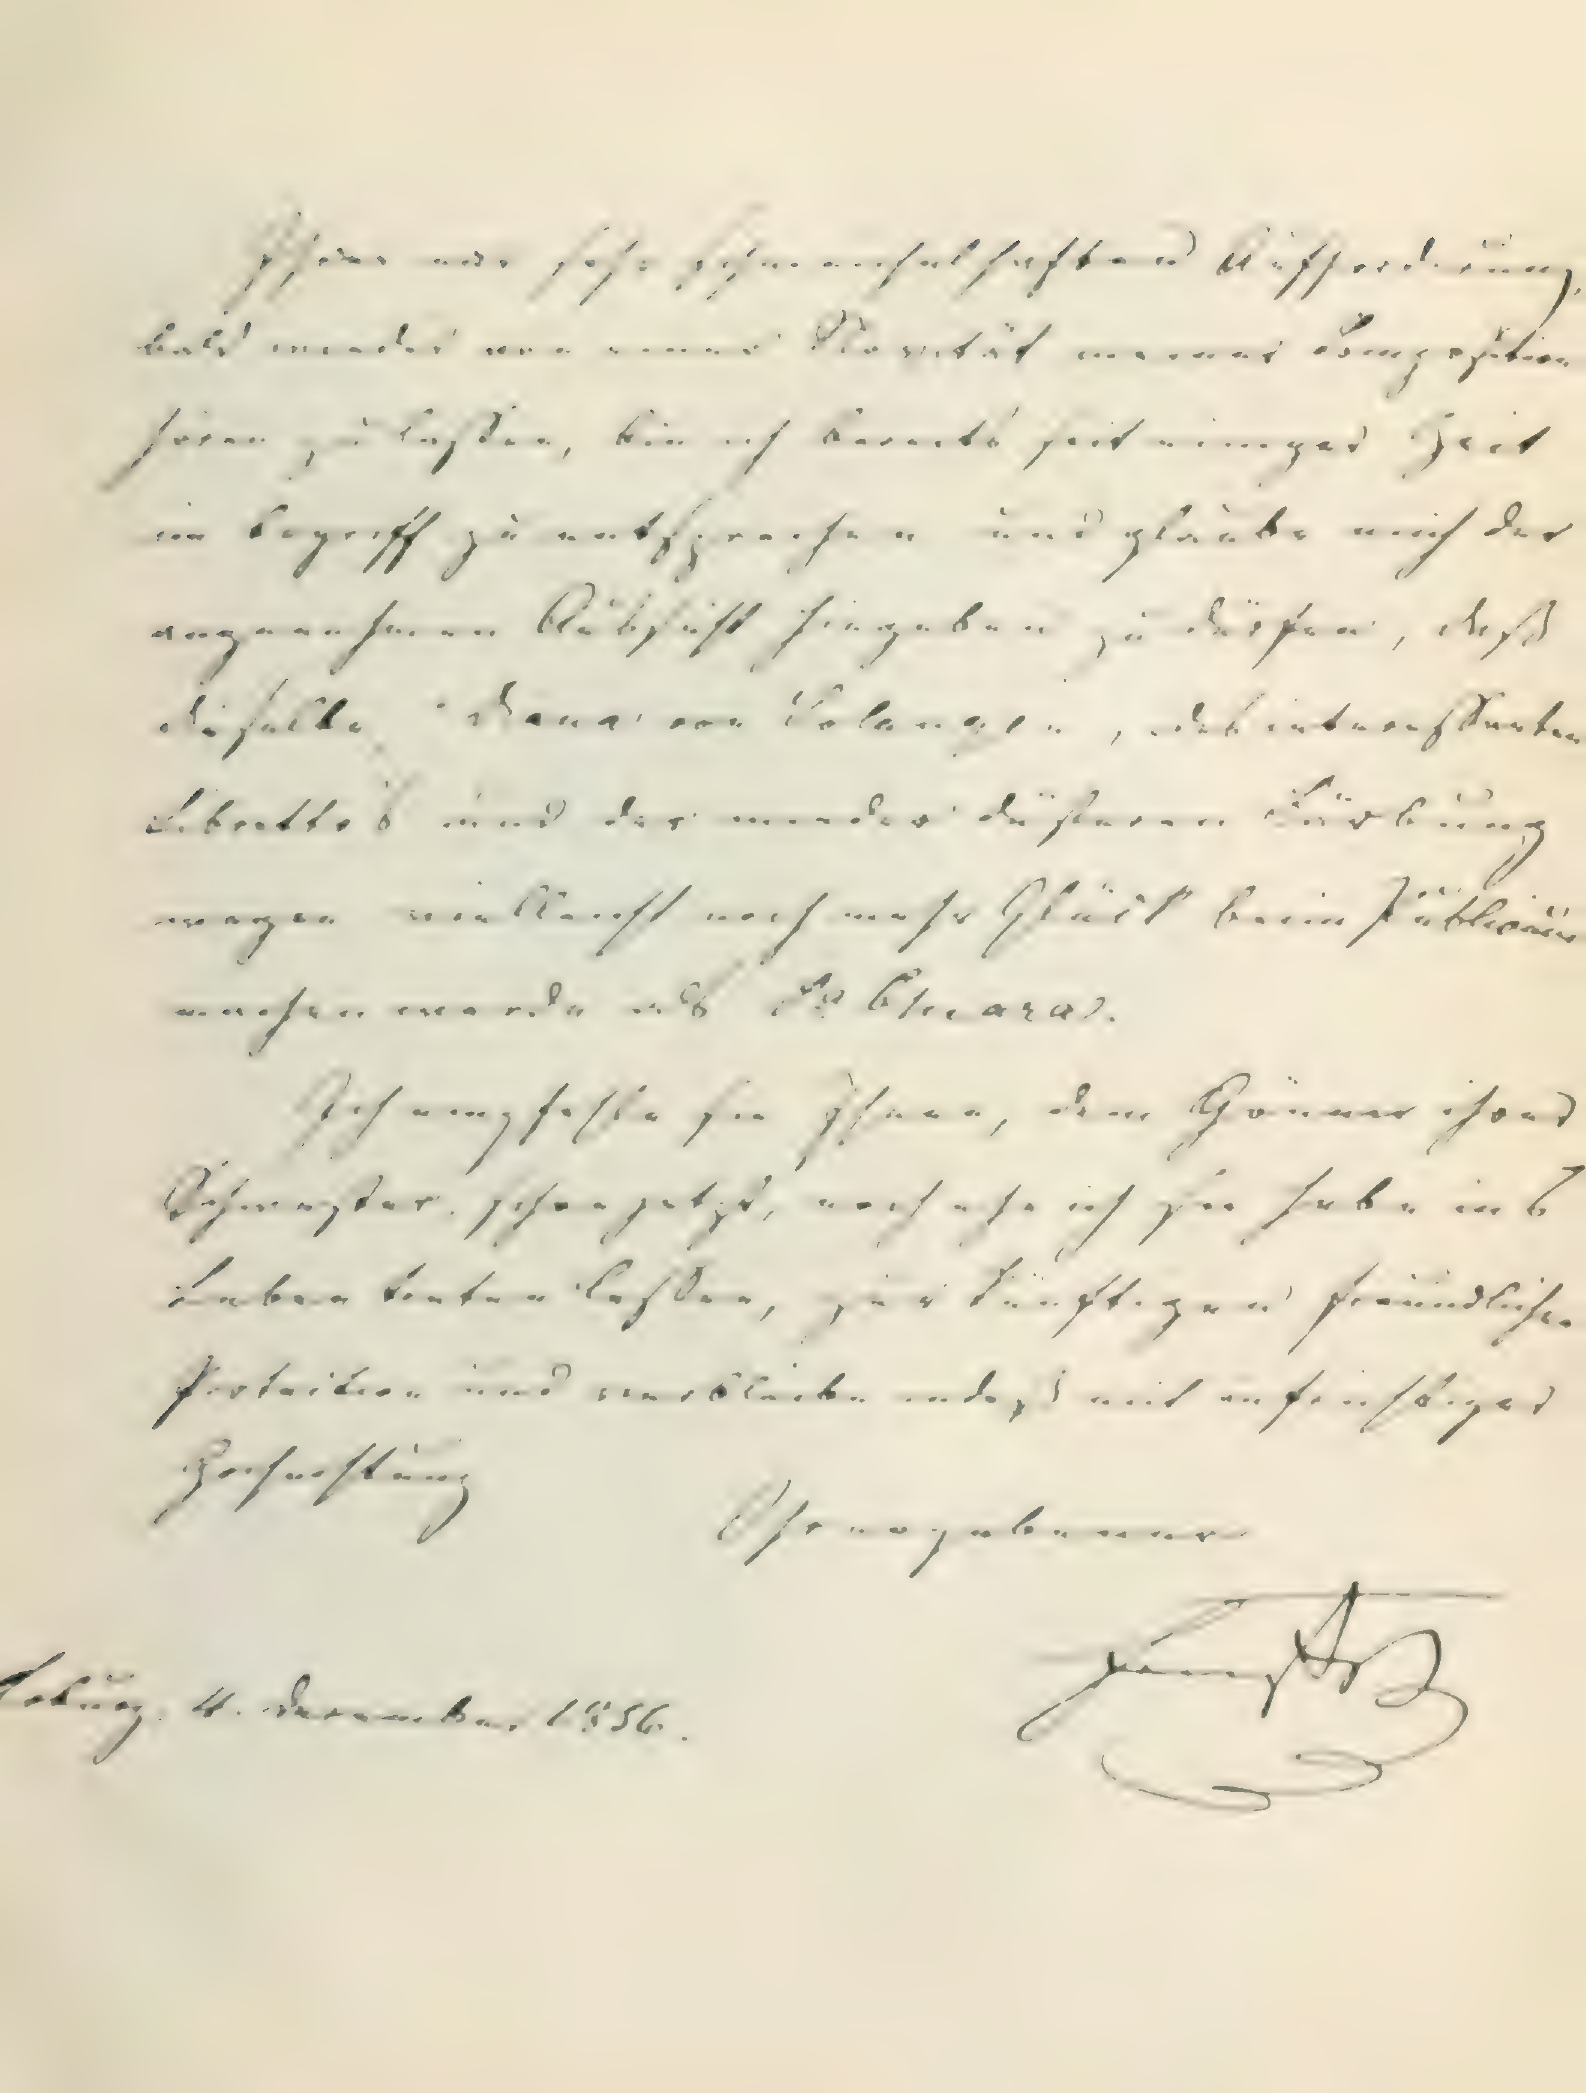 Ihrer mir sehr schmeichelhaften Aufforderung,
bald wieder von einer Novität meiner Composition
hören zu lassen, bin ich bereits seit einiger Zeit
im Begriff zu entsprechen und glaube mich der
angenehmen Aussicht hingeben zu dürfen, daß
dieselbe "Diana von Solange", des interessanten
Librettos und der minder düsteren Färbung
wegen vielleicht noch mehr Glück beim Publicum
machen werde als S. Chiara.
Ich empfehle sie Ihnen, dem Gönner ihrer
Schwester, schon jetzt, noch ehe ich sie habe ins
Leben treten lassen, zur künftigen freundlichen
Protection und verbleibe indeß mit aufrichtiger
Hochachtung
Ihr ergebener
Ernst
Coburg. 4. December 1856.